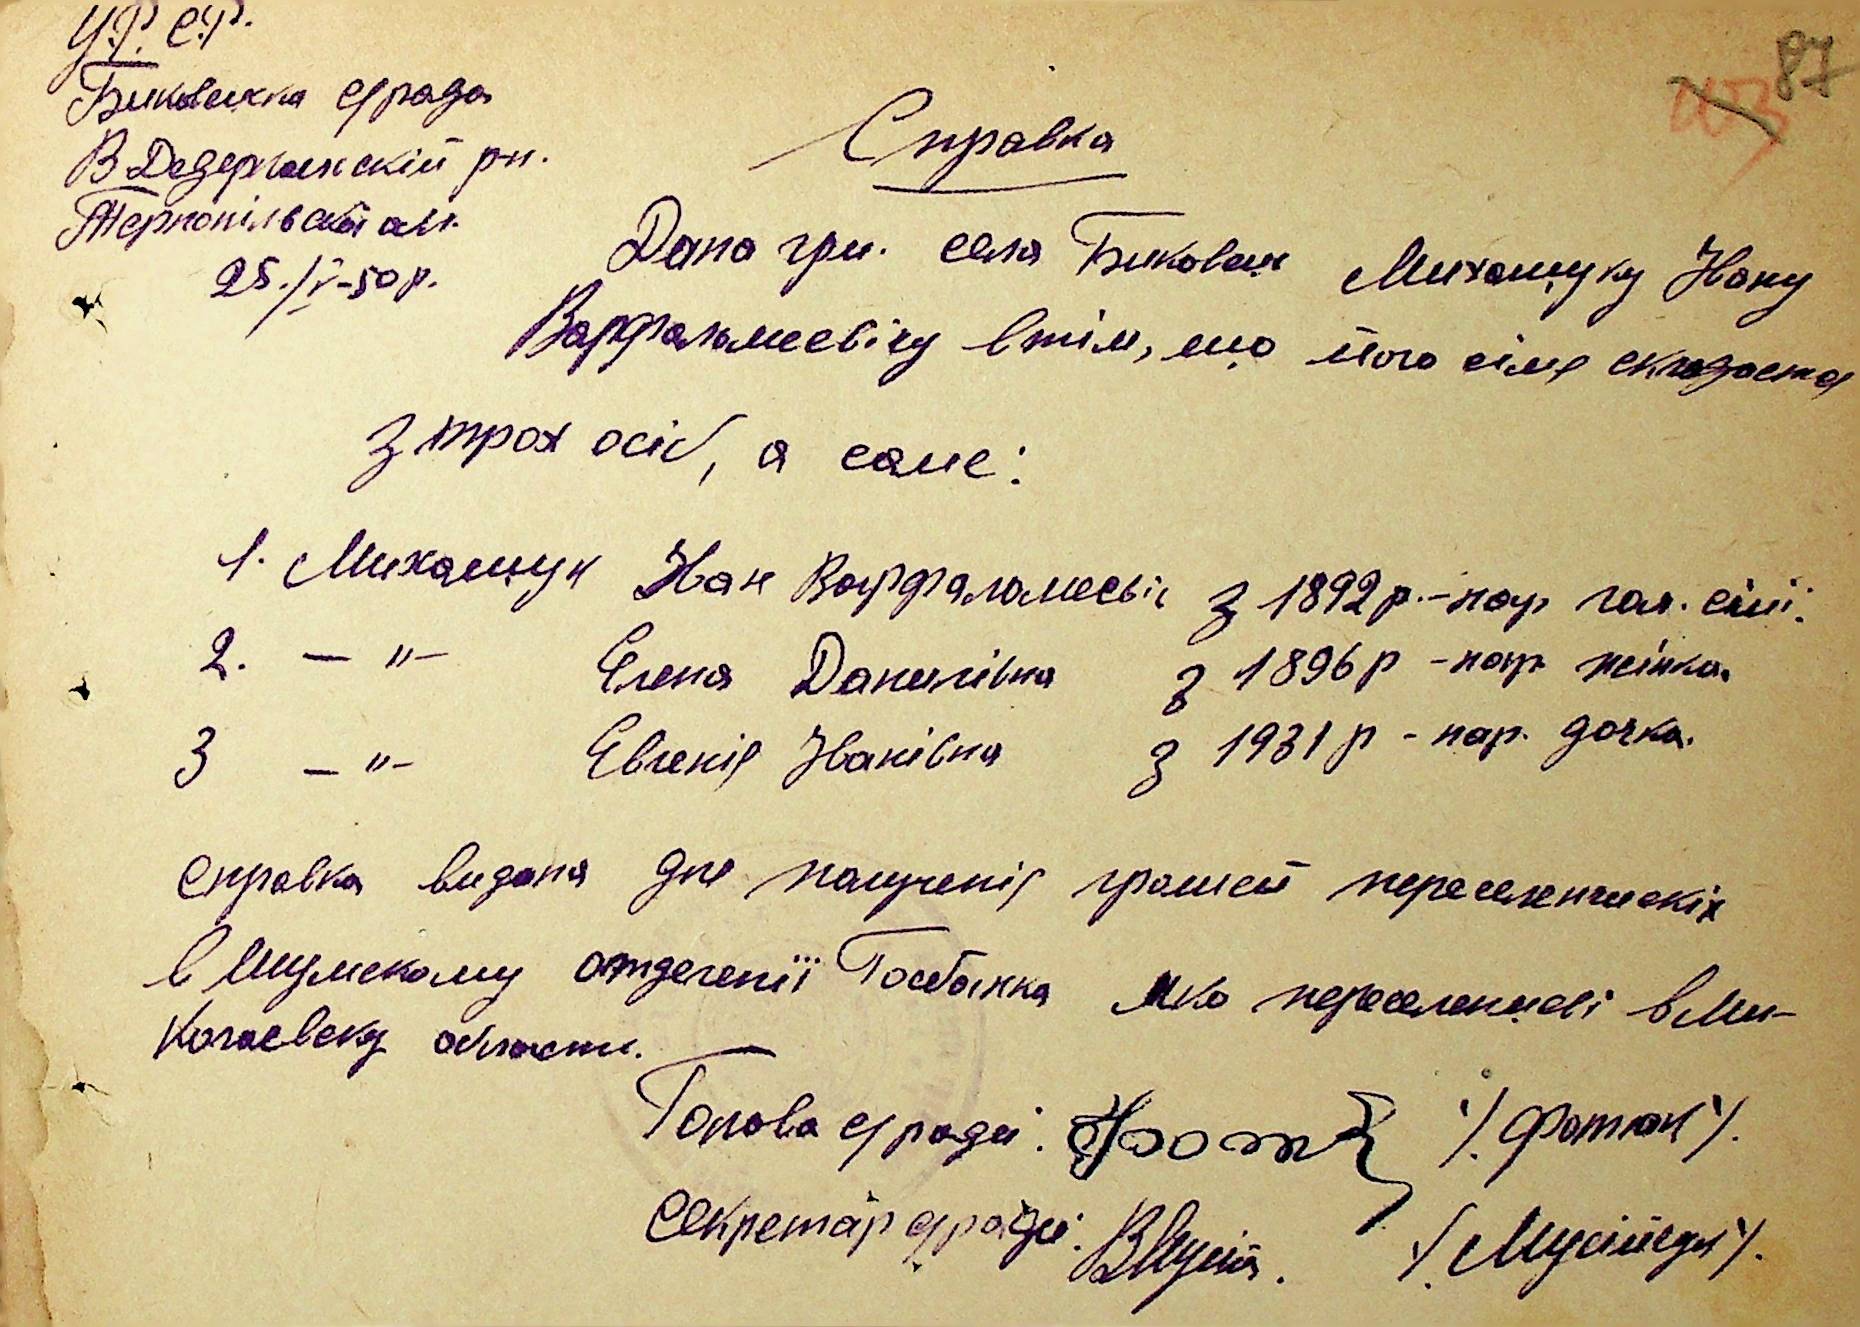 У.Р.С.Р.
87
Биковецка с/рада
В Дедеркальскій р-н.
Тернопільскої обл.
25./IV-50 р.
Справка
Дана гр-н. села Биковец Михальчуку Ивану
Варфальмеєвічу в тім, що його сімя складаєтся
з трох осіб, а саме:
1. Михальчук Иван Варфаломеєвіч з 1892 р.-нар гол. сімї.
2. — „— Елена Данилівна з 1896 р - нар жінка.
3 — „— Евгенія Иванівна з 1931 р - нар. дочка.
Справка видана для полученія грошей переселенческіх
в Шумскому отделенії Госбанка яко переселенцеві в Ми-
колаєвску область.
Голова с/ради: /. Фотюк /.
Секретар с/ради: В Мусій. /.